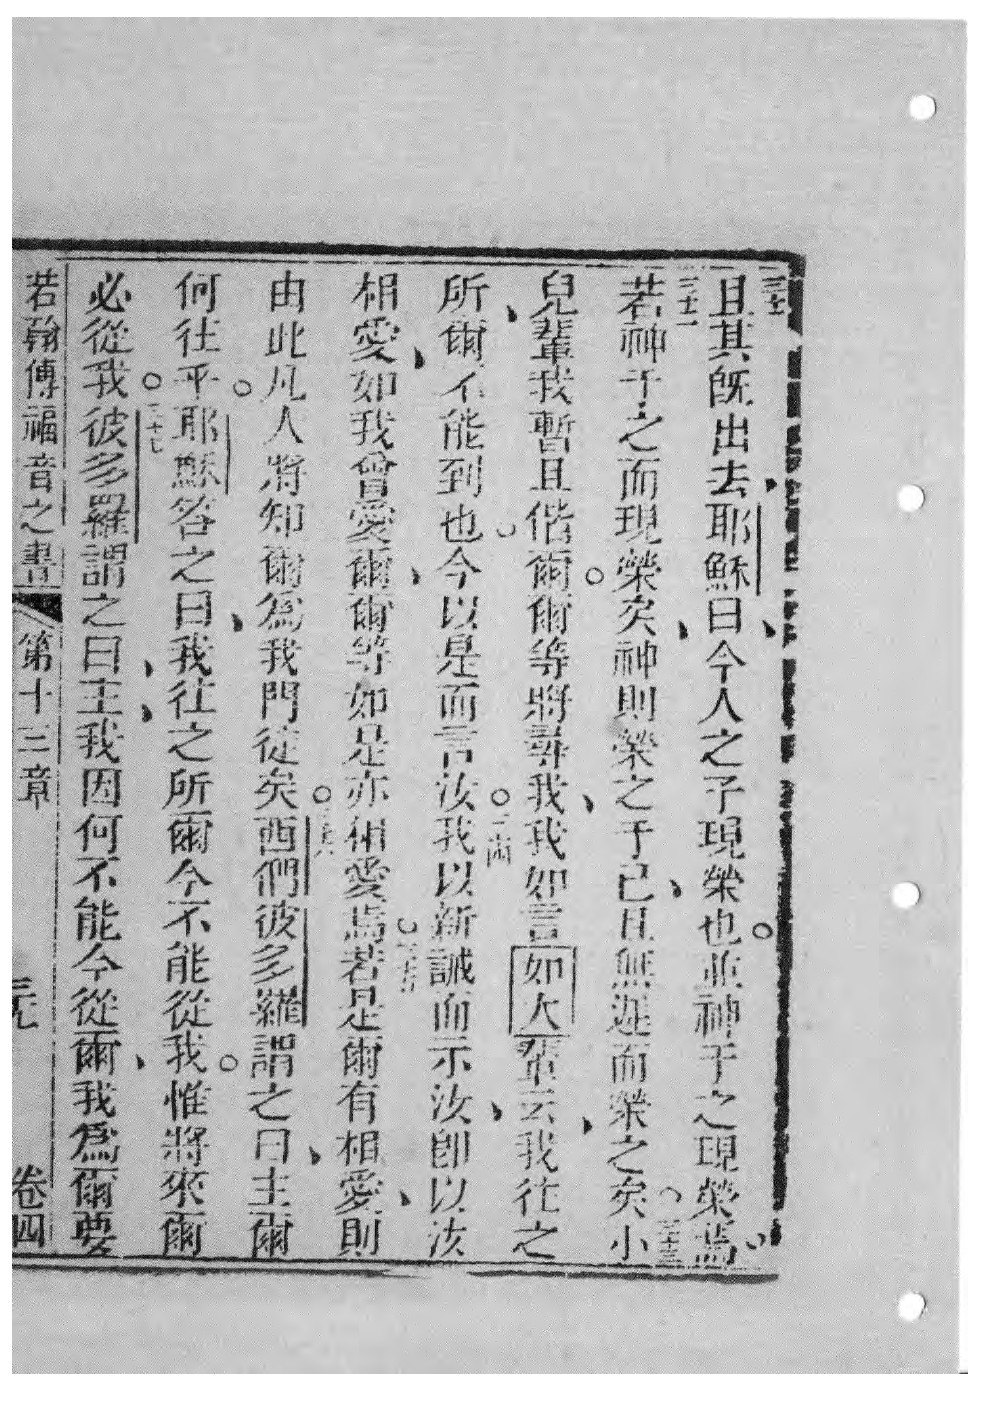 三十一且其旣出去耶穌曰今人之子現榮也並神于之現榮焉
三十二若神于之而現榮矣神則榮之于己且無遲而榮之矣三十三小
兒輩我暫且偕爾爾等將尋我我如言如大輩云我往之
所爾不能到也今以是而言汝三十四我以新誡而示汝卽以汝
相愛如我曾愛爾爾等如是亦相愛焉三十五若是爾有相愛則
由此凡人將知爾為我門徒矣三十六西們彼多羅謂之曰主爾
何往乎耶穌答之曰我往之所爾今不能從我惟將來爾
必從我三十七彼多羅謂之曰主我因何不能今從爾我為爾要
若翰傳福音之書 第十三章 卷四